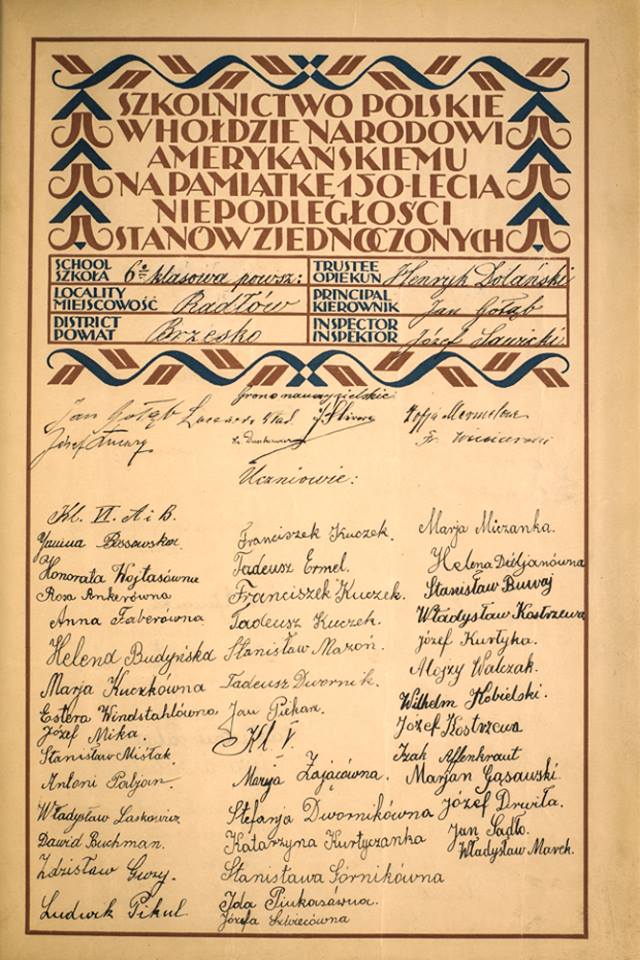 SZKOLNICTWO POLSKIE
W HOŁDZIE NARODOWI
AMERYKAŃSKIEMU
NA PAMIĄTKĘ 150-LECIA
NIEPODLEGŁOŚCI
STANÓW ZJEDNOCZONYCH
SCHOOL
SZKOŁA
6 klasowa powsz:
TRUSTEE
OPIEKUN
Henryk Dolański
LOCALITY
MIEJSCOWOŚĆ
Radłów
PRINCIPAL
KIEROWNIK
Jan Gołąb
DISTRICT
POWIAT
Brzesko
INSPECTOR
INSPEKTOR
Józef Sawicki
Grono nauczycielskie
Jan Gołąb
Zofja
Józef
Uczniowie:
Kl. VI. A i B.
Janina Bossowska
Honorata Wojtasówna
Roza Ankerówna
Anna Faberówna
Helena Budyńska
Marja Kuczkówna
Estera Windstahlówna
Józef Mika.
Stanisław Misłak.
Antoni Patjan.
Władysław Laskowicz
Dawid Buchman.
Zdzisław Guzy.
Ludwik Pikul.
Franciszek Kuczek.
Tadeusz Ermel.
Franciszek Kuczek.
Tadeusz Kuczek.
Stanisław Mazoń.
Tadeusz Dwornik.
Jan Piekarz.
Kl V.
Marja Zającówna.
Stefanja Dwornikówna
Katarzyna Kurtyczanka
Stanisława Sórnikówna
Ida Pinkasówna.
Józefa Szwiecówna
Marja Miczanka.
Helena Didjanówna
Stanisław Burvaj
Władysław Kostrzewa
Józef Kurtyka.
Alojzy Walczak.
Wilhelm Kobielski.
Józef Kostrzewa
Izak Affenkraut
Marjan Gąsawski.
Józef Drwiła.
Jan Sadło.
Władysław Marek.